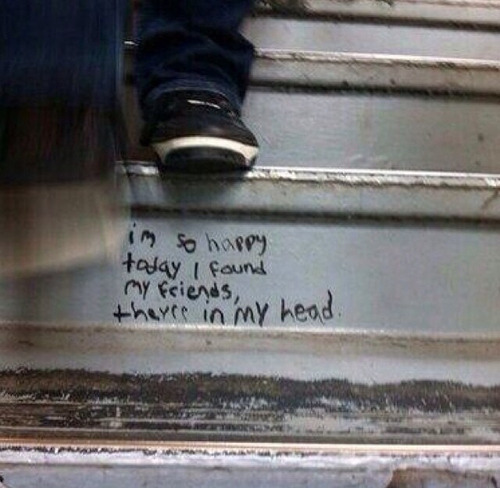 im so happy
today I found
my friends,
they're in my head.